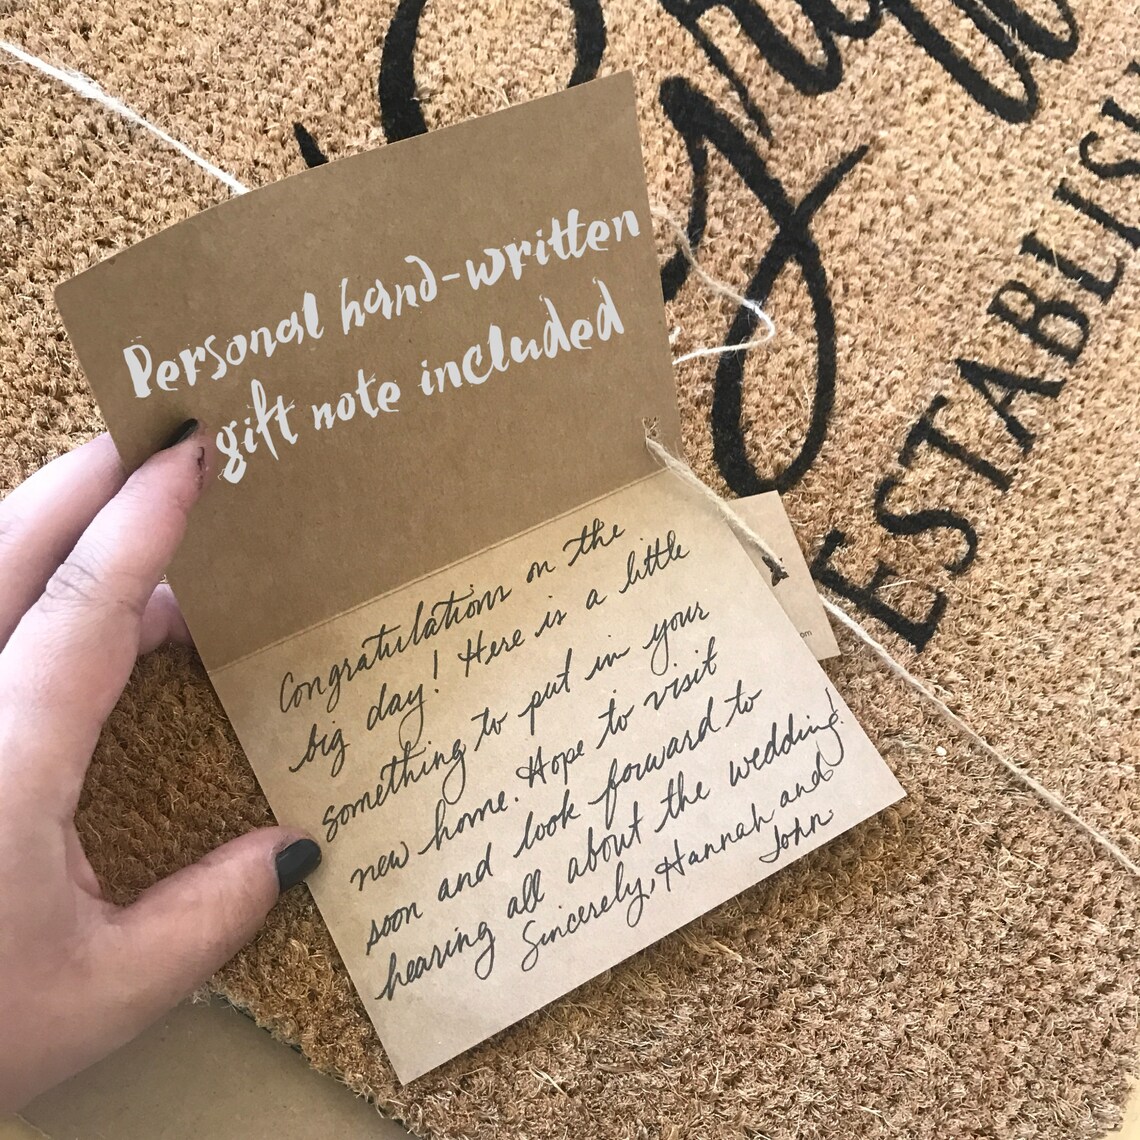 Personal hand-written
gift note included
Congratulations on the
big day! Here is a little
something to put in your
new home. Hope to visit
soon and look forward to
hearing all about the wedding!
Sincerely, Hannah and
John
ESTABLISH
om